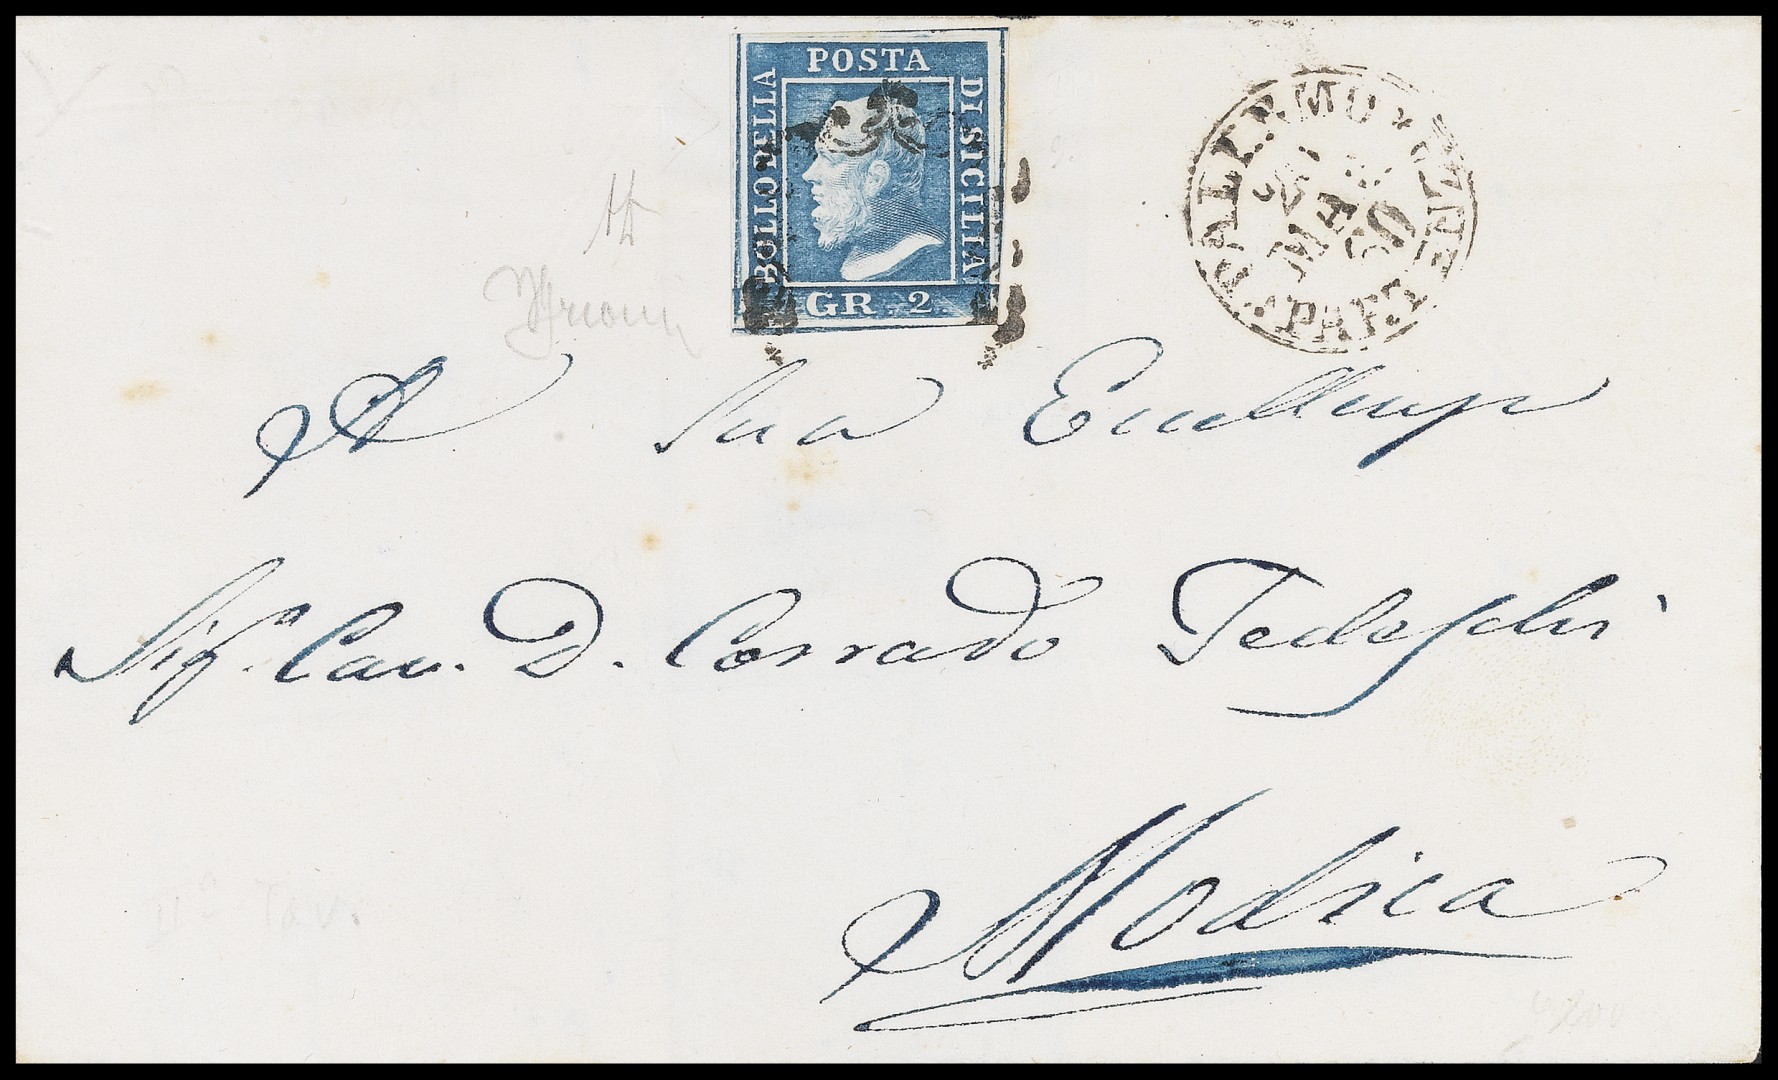 POSTA
BOLLO DELLA
DI SICILIA
GR. 2
PALERMO
PARTENZA
A Sua Eccellenza
Sigr. Cav. D. Corrado Tedeschi
Modica
IIa Tav.